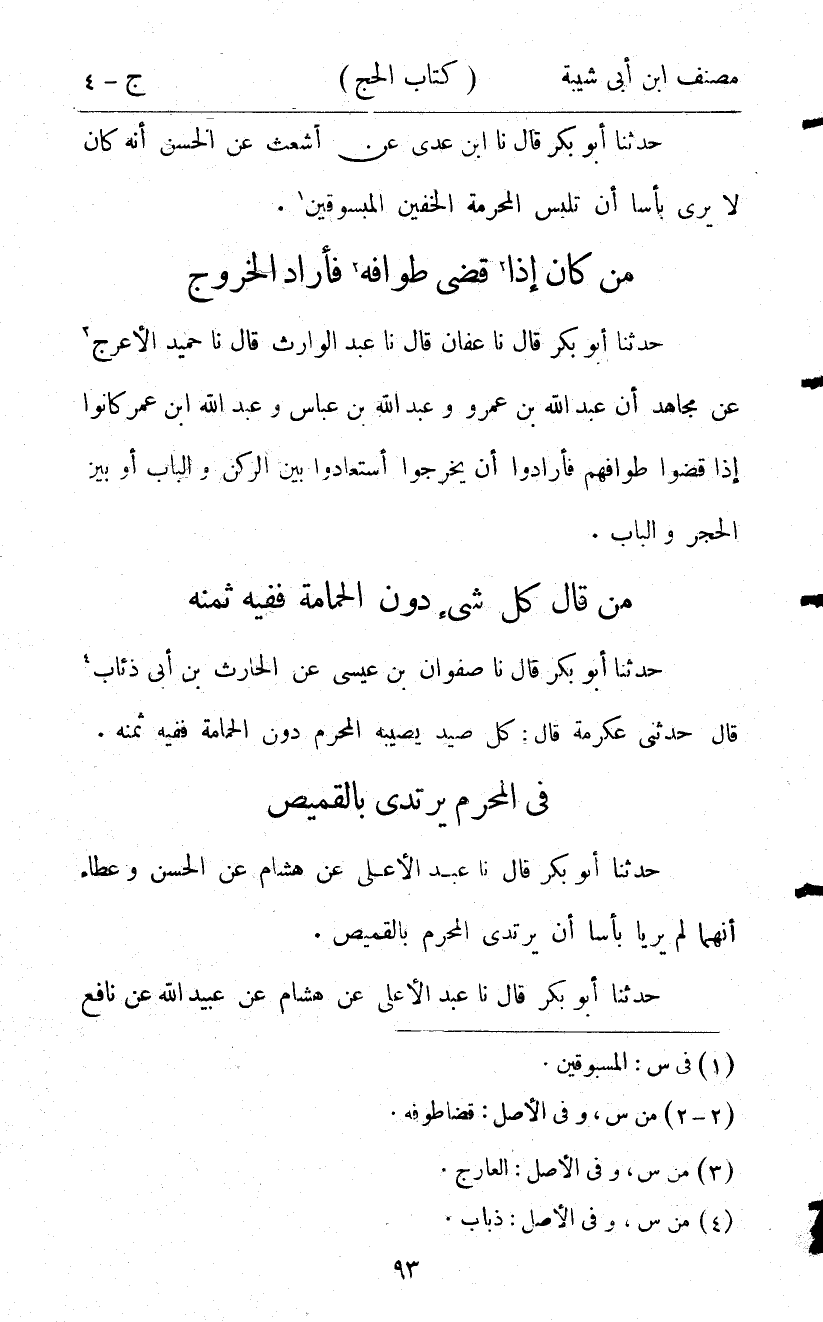 مصنف ابن أبى شيبة ( كتاب الحج ) ج - ٤
حدثنا أبو بكر قال نا ابن عدى عن أشعث عن الحسن أنه كان
لا يرى بأسا أن تلبس المحرمة الخفين المبسوقين١ .
من كان إذا٢ قضى طوافه٢ فأراد الخروج
حدثنا أبو بكر قال نا عفان قال نا عبد الوارث قال نا حميد الأعرج٣
عن مجاهد أن عبد الله بن عمرو و عبد الله بن عباس و عبد الله ابن عمر كانوا
إذا قضوا طوافهم فأرادوا أن يخرجوا أستعادوا بين الركن و الباب أو بين
الحجر و الباب .
من قال كل شىء دون الحمامة ففيه ثمنه
حدثنا أبو بكر قال نا صفوان بن عيسى عن الحارث بن أبى ذئاب٤
قال حدثنى عكرمة قال : كل صيد يصيبه المحرم دون الحمامة ففيه ثمنه .
فى المحرم يرتدى بالقميص
حدثنا أبو بكر قال نا عبد الأعلى عن هشام عن الحسن و عطاء
أنهما لم يريا بأسا أن يرتدى المحرم بالقميص .
حدثنا أبو بكر قال نا عبد الأعلى عن هشام عن عبيد الله عن نافع
(١) فى س : المسبوقين .
(٢-٢) من س ، و فى الأصل : قضا طوفه .
(٣) من س ، و فى الأصل : العارج .
(٤) من س ، و فى الأصل : ذباب .
٩٣